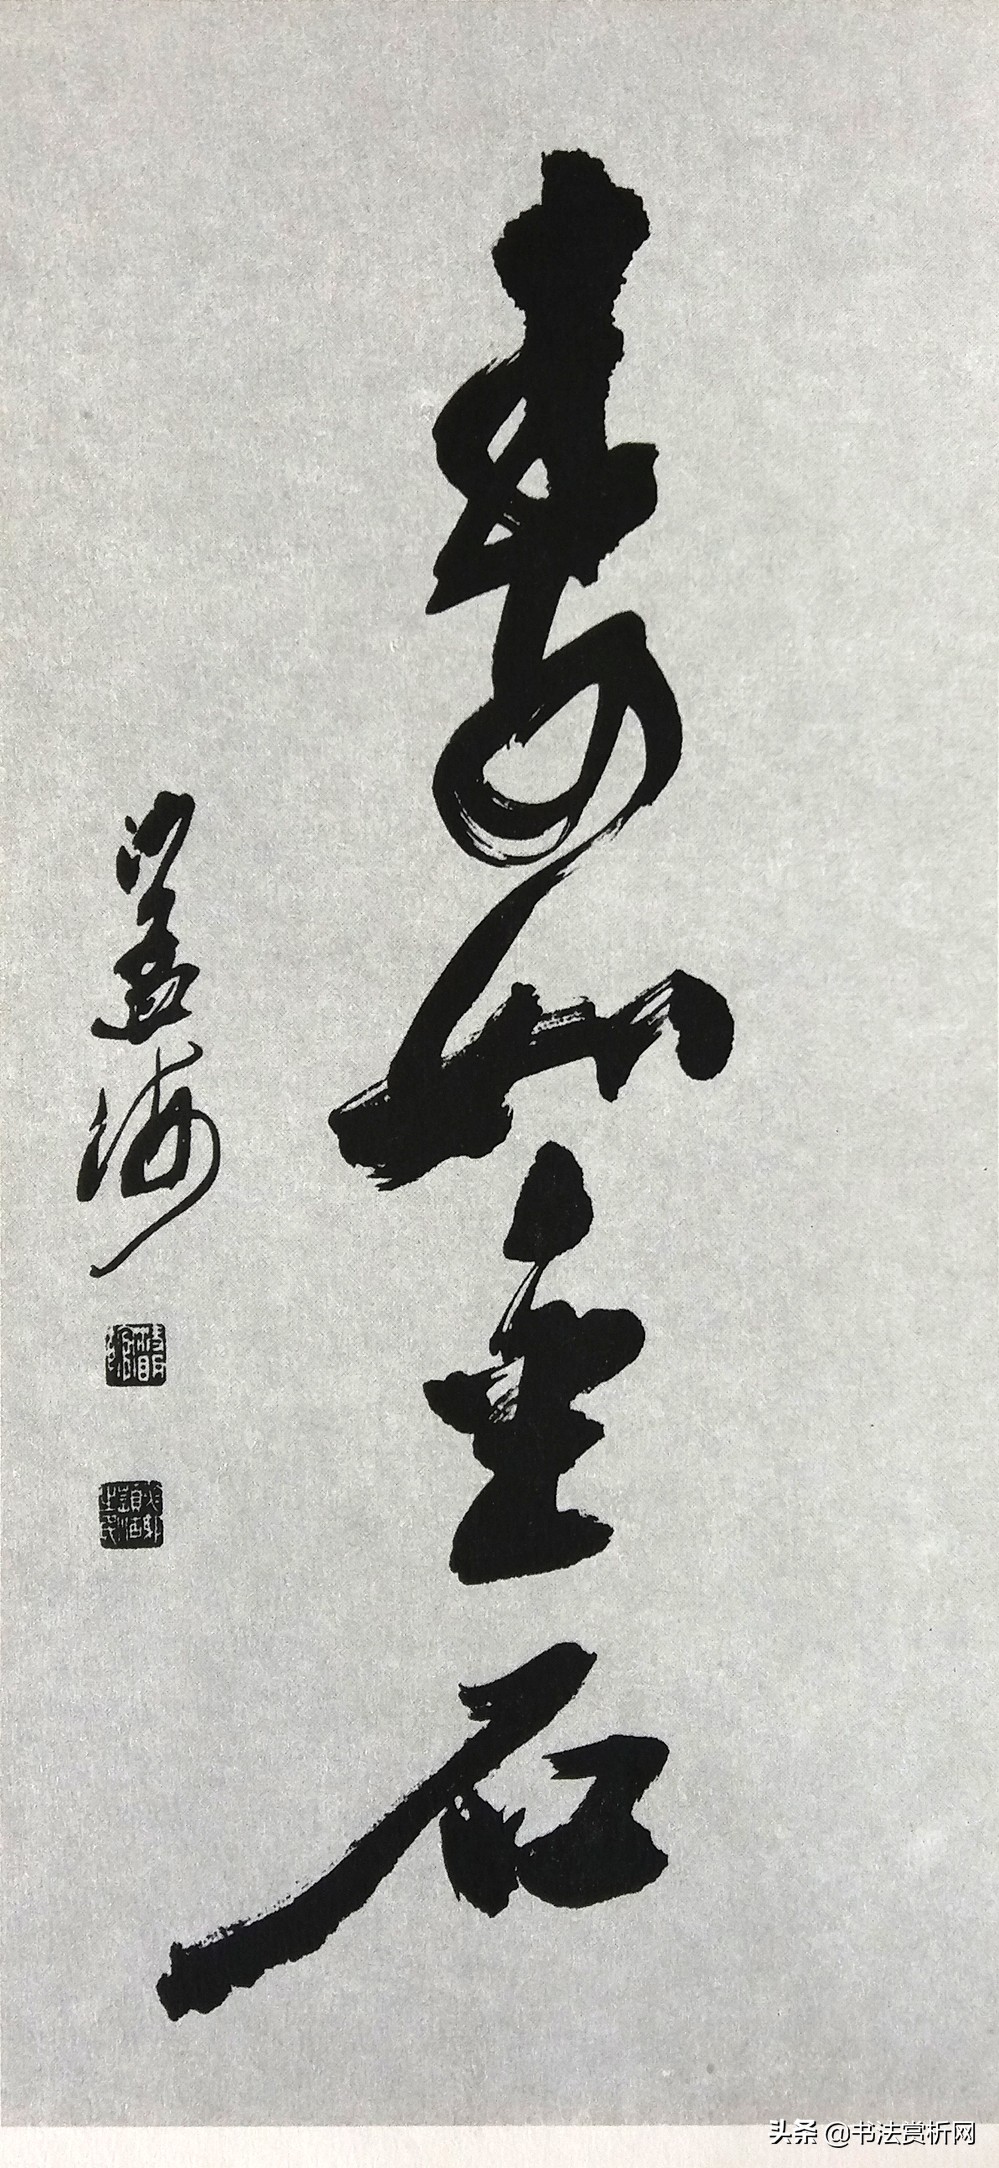 壽如金石
孟海
头条 @书法赏析网